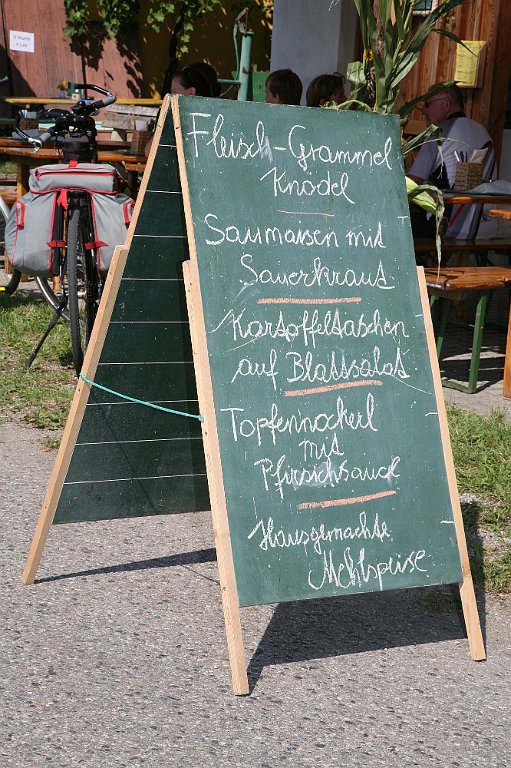 Fleisch-Grammel
Knödel
Saumaisen mit
Sauerkraut
Kartoffeltaschen
auf Blattsalat
Topfennockerl
mit
Pfirsichsauce
Hausgemachte
Mehlspeise